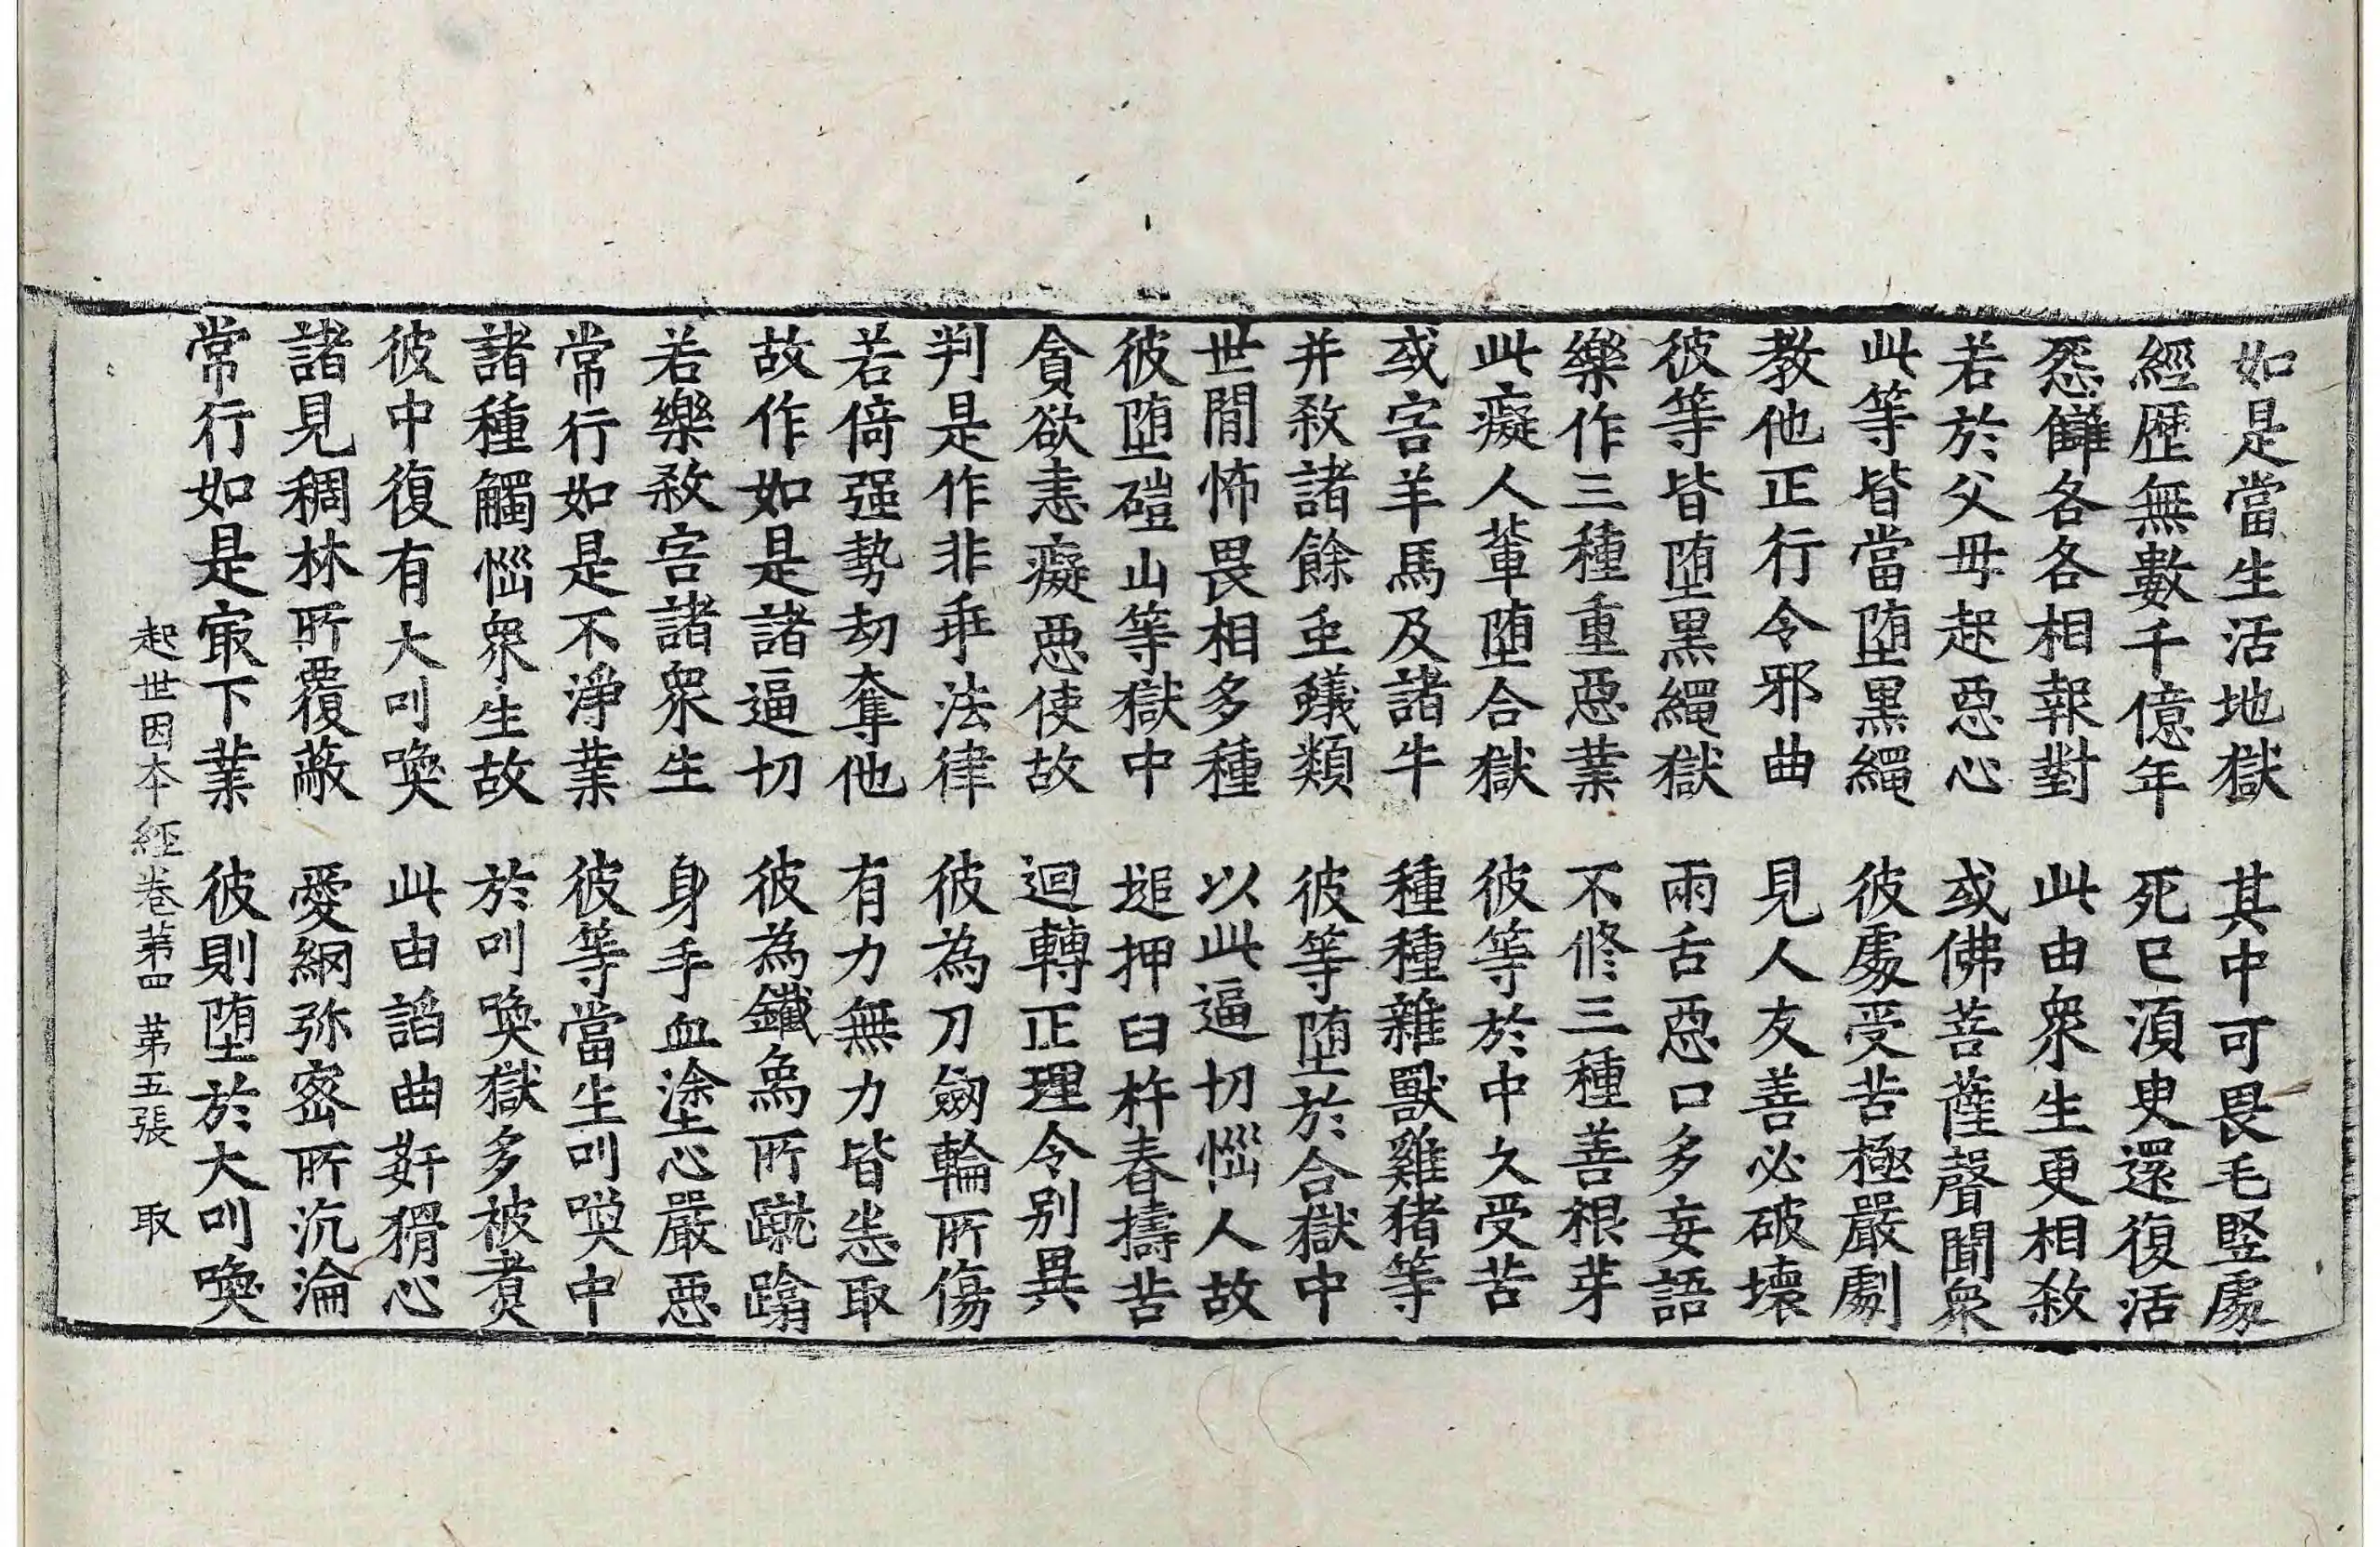 如是當生活地獄　其中可畏毛竪處
經歷無數千億年　死已須臾還復活
怨讎各各相報對　此由衆生更相殺
若於父母起惡心　或佛菩薩聲聞衆
此等皆當墮黑繩　彼處受苦極嚴劇
教他正行令邪曲　見人友善必破壞
彼等皆墮黑繩獄　兩舌惡口多妄語
樂作三種重惡業　不修三種善根芽
此癡人輩墮合獄　彼等於中久受苦
或害羊馬及諸牛　種種雜獸雞猪等
并殺諸餘虫蟻類　彼等墮於合獄中
世間怖畏相多種　以此逼切惱人故
彼墮磑山等獄中　搥押臼杵舂擣苦
貪欲恚癡惡使故　迴轉正理令別異
判是作非乖法律　彼為刀劒輪所傷
若倚强勢劫奪他　有力無力皆悉取
故作如是諸逼切　彼為鐵烏所蹴蹹
若樂殺害諸衆生　身手血塗心嚴惡
常行如是不淨業　彼等當生叫喚中
諸種觸惱衆生故　於叫喚獄多被煑
彼中復有大叫喚　此由諂曲姧猾心
諸見稠林所覆蔽　愛網弥密所沉淪
常行如是冣下業　彼則墮於大叫喚
起世因本經卷第四　第五張　取